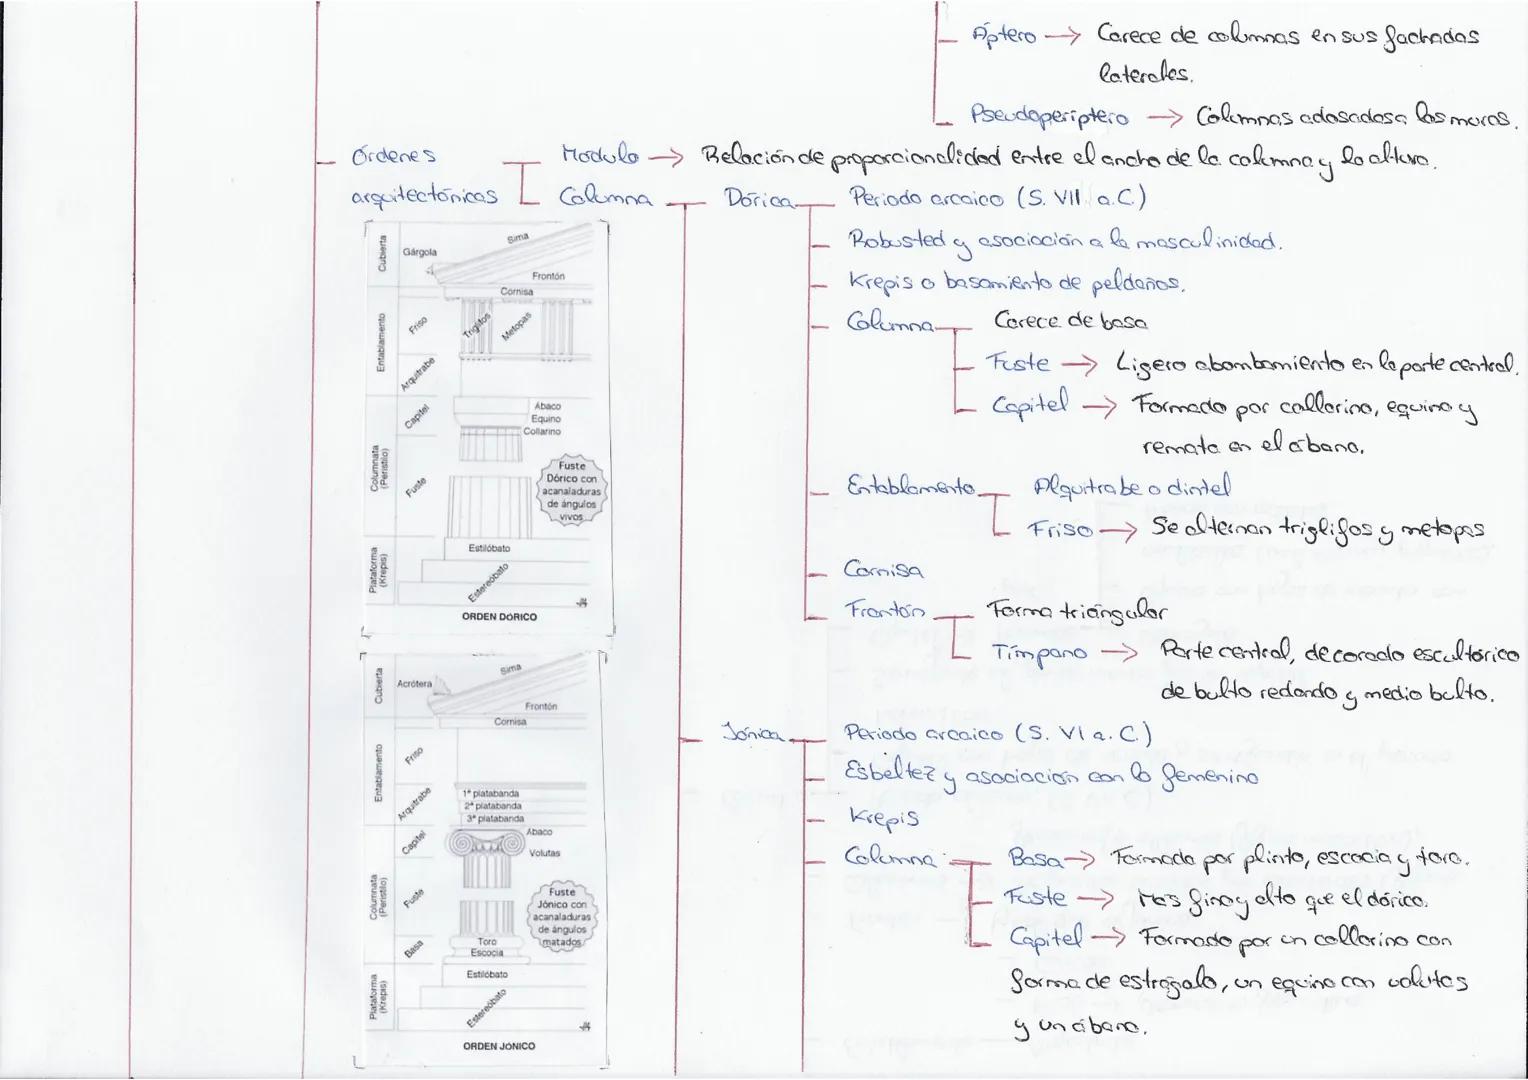 Áptero → Carece de columnas en sus fachadas
laterales.
Pseudoperíptero → Columnas adosadas a los muros.
Órdenes
arquitectónicos
Modulo → Relación de proporcionalidad entre el ancho de la columna y la altura.
Columna
Dórica
Periodo arcaico (S. VII a.C.)
Robusted y asociación a la masculinidad.
Krepis o basamiento de peldaños.
Columna
Carece de basa
Fuste → Ligero abombamiento en la parte central.
Capitel → Formado por collarino, equino y
remata en el ábano.
Entablamento
Alquitrabe o dintel
Friso → Se alternan triglifos y metopas
Cornisa
Frontón
Forma triángular
Tímpano → Parte central, decorado escultórico
de bulto redondo y medio bulto.
Jónica
Periodo arcaico (S. VI a. C.)
Esbeltez y asociación con lo femenino
Krepis
Columna
Basa → Formada por plinto, escocia y toro.
Fuste → Mas fino y alto que el dórico.
Capitel → Formado por un collarino con
forma de estrágalo, un equino con volutas
y un ábano.
Cubierta
Gárgola
Sima
Frontón
Cornisa
Entablamento
Friso
Triglifos
Metopas
Arquitrabe
Capitel
Abaco
Equino
Collarino
Columnata
(Peristilo)
Fuste
Fuste
Dórico con
acanaladuras
de ángulos
vivos
Plataforma
(Krepis)
Estilóbato
Estereóbato
ORDEN DÓRICO
Cubierta
Acrótera
Sima
Frontón
Cornisa
Entablamento
Friso
Arquitrabe
1ª platabanda
2ª platabanda
3ª platabanda
Capitel
Abaco
Volutas
Columnata
(Peristilo)
Fuste
Fuste
Jónico con
acanaladuras
de ángulos
matados
Basa
Toro
Escocia
Plataforma
(Krepis)
Estilóbato
Estereóbato
ORDEN JÓNICO